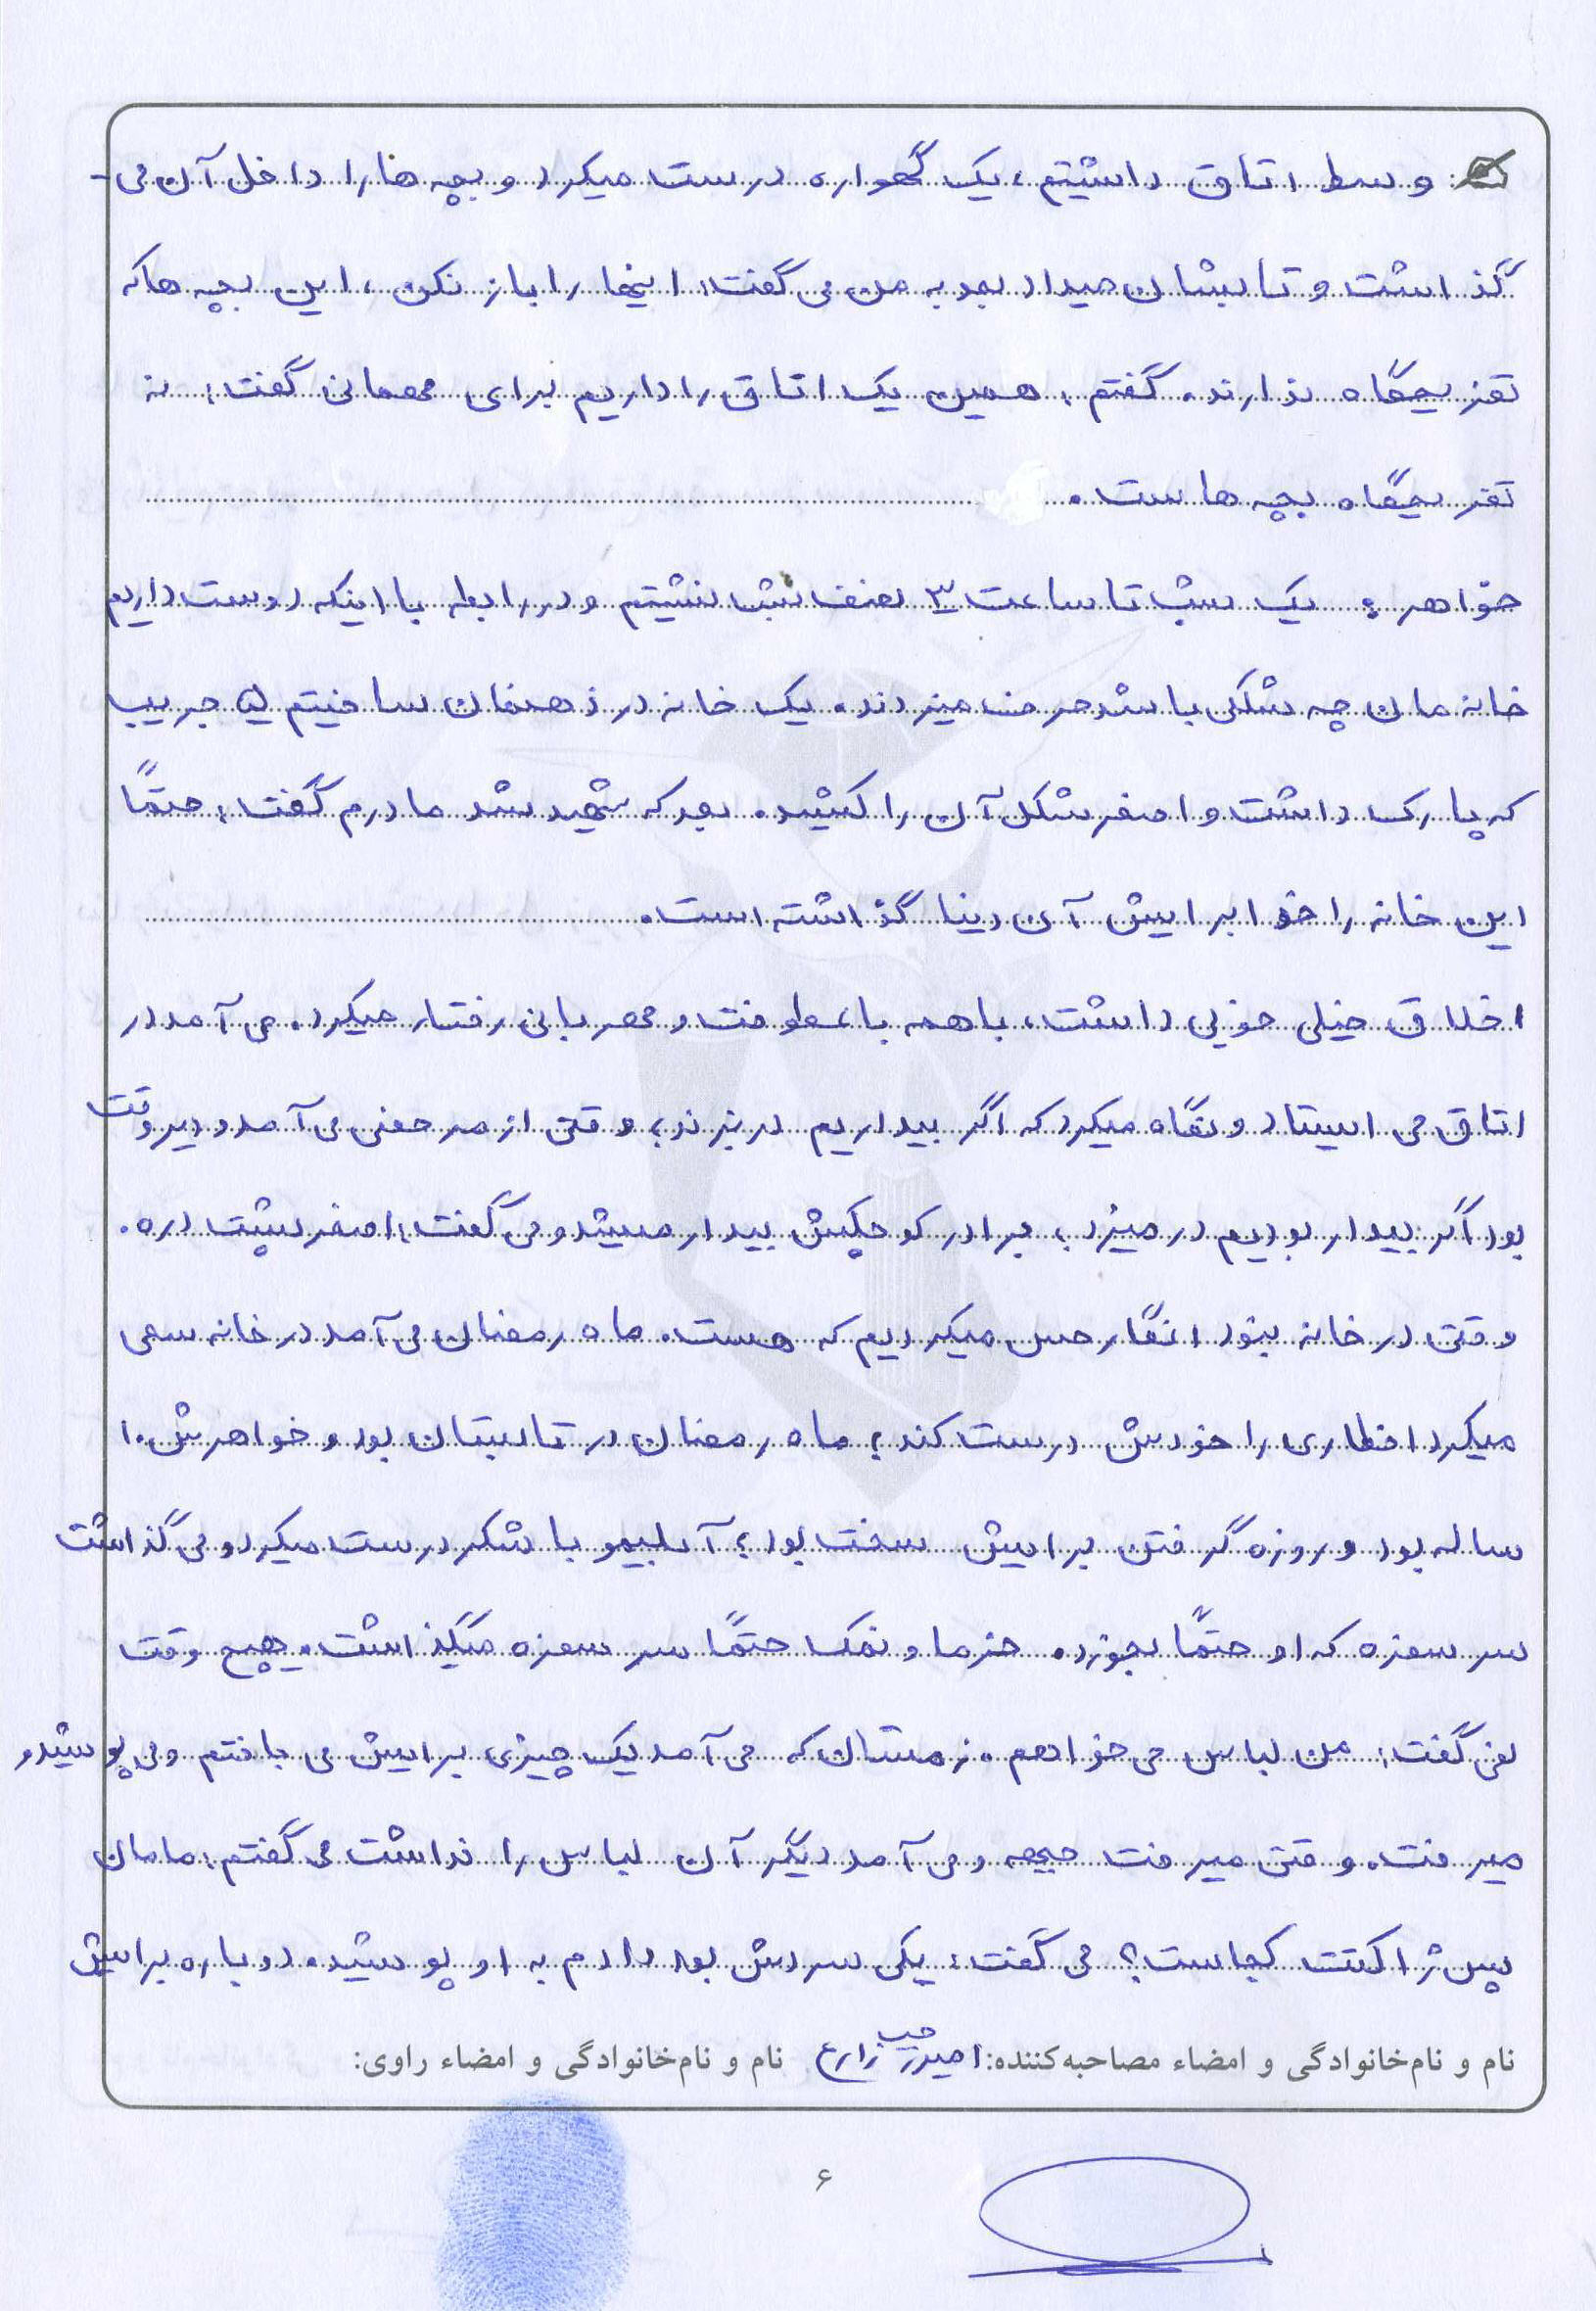 وسط اتاق داشتیم، یک گهواره درست میکرد و بچه ها را داخل آن می-
گذاشت و تابشان میداد بعد به من می گفت: اینها را باز نکن، این بچه ها که
تفریحگاه ندارند. گفتم: همین یک اتاق را داریم برای مهمانی گفت: نه
تفریحگاه بچه هاست.
خواهر: یک شب تا ساعت ۳ نصف شب نشستیم و در رابطه با اینکه دوست داریم
خانه مان چه شکلی باشد حرف میزدند. یک خانه در ذهنمان ساختیم ۵ جریب
که پارک داشت و اصغر شکل آن را کشید. بعد که شهید شد مادرم گفت: حتماً
این خانه را خدا برایش آن دنیا گذاشته است.
اخلاق خیلی خوبی داشت، با همه با عطوفت و مهربانی رفتار میکرد. می آمد در
اتاق می ایستاد و نگاه میکرد که اگر بیداریم در بزند؛ وقتی از مرخصی می آمد و دیروقت
بود اگر بیدار بودیم در میزد، برادر کوچکش بیدار میشد و می گفت: اصغر پشت دره.
وقتی در خانه نبود انگار حس میکردیم که هست. ماه رمضان می آمد در خانه سعی
میکرد افطاری را خودش درست کند؛ ماه رمضان در تابستان بود و خواهرش ۱۰
ساله بود و روزه گرفتن برایش سخت بود؛ آبلیمو با شکر درست میکرد و می گذاشت
سر سفره که او حتماً بخورد. خرما و نمک حتماً سر سفره میگذاشت. هیچ وقت
نمی گفت: من لباس می خواهم. زمستان که می آمد یک چیزی برایش می بافتم و می پوشید و
میرفت. وقتی میرفت جبهه و می آمد دیگر آن لباس را نداشت می گفتم: مامان
پس ژاکتت کجاست؟ می گفت: یکی سردش بود دادم به او پوشید. دوباره برایش
نام و نام‌خانوادگی و امضاء مصاحبه‌کننده: زارع نام و نام‌خانوادگی و امضاء راوی:
۶